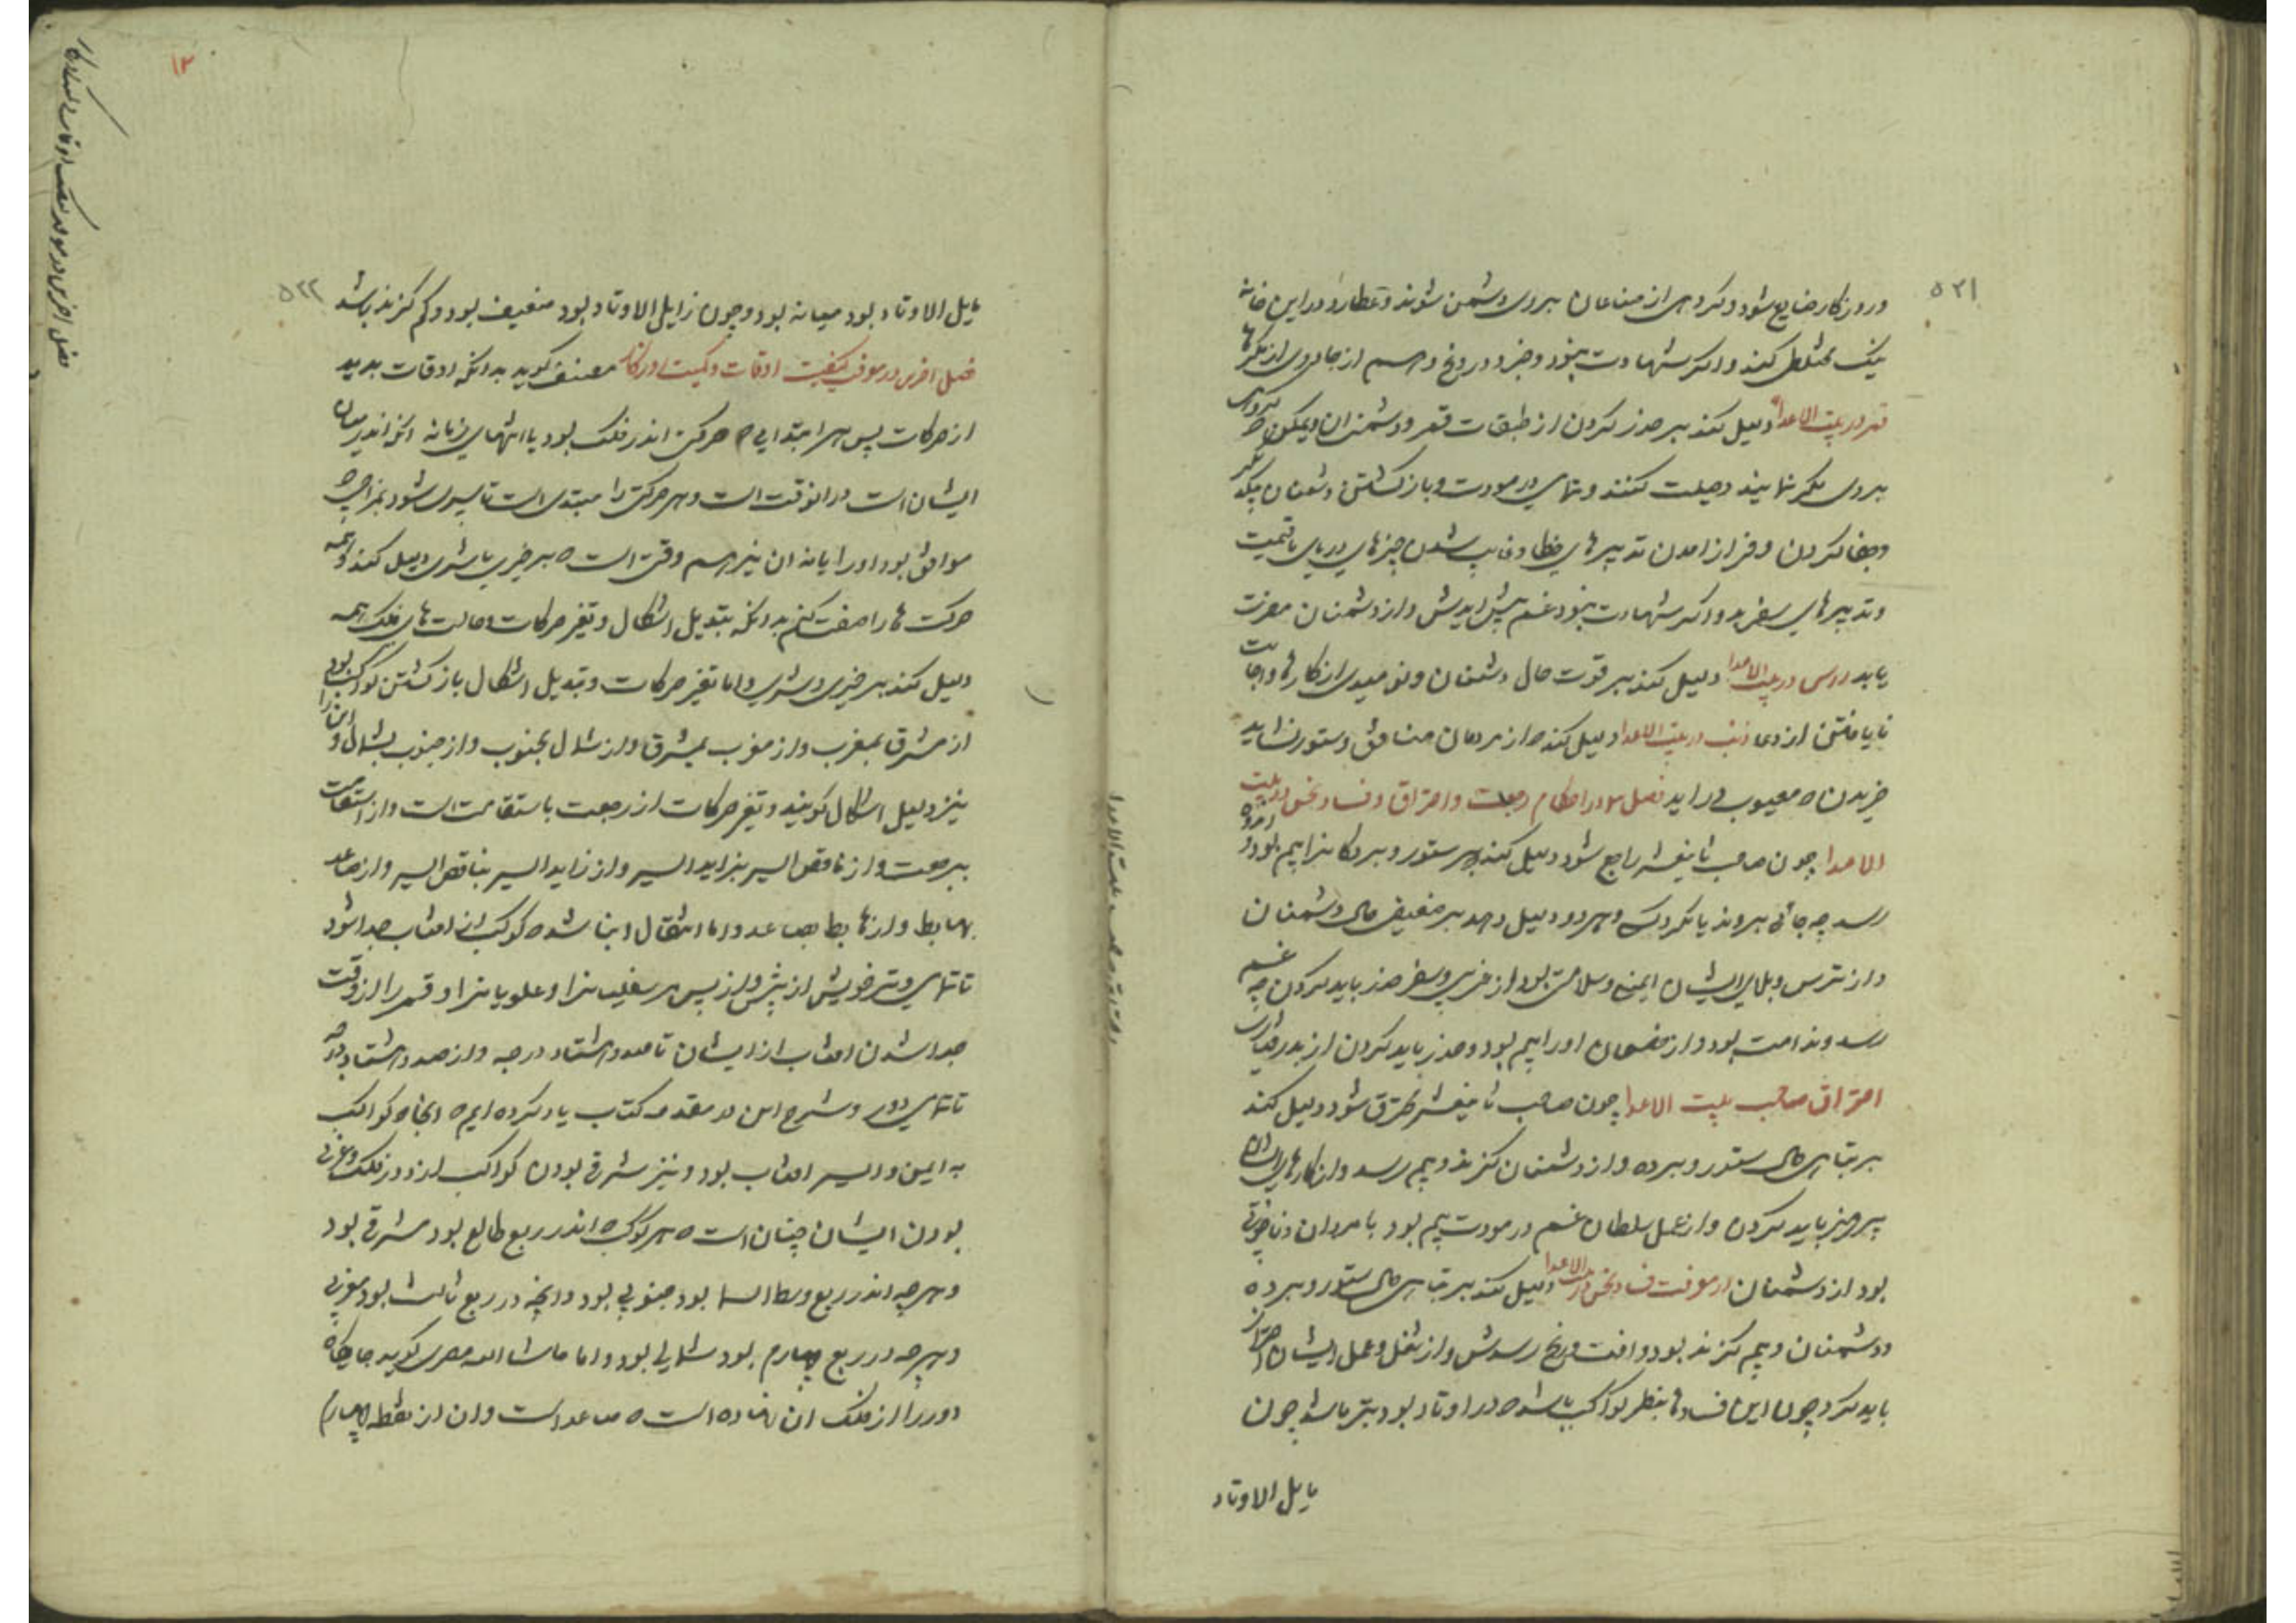 ۵۲۱
و روزکار ضایع شود و کروهی از صناعان بروی دشمن شوند و عطارد در این خانه
نیک مختلط کند و اگر شهادت بنود و ضرر و دروغ و هم از جادوی از
قمر در بیت الاعدا دلیل کند بر حذر کردن از طبقات قعر و دشمنان
بروی مکر نمایند و حیلت کنند و تباهی در مودت و باز کشتن دشمنان
و جفا کردن و فراز امدن تدبیرهای خطا و غایب شدن چیزهای دریای باقیمت
و تدبیرهای سفر بد و اگر شهادت بنود غم پیش ایدش و از دشمنان مضرت
یابد راس در بیت الاعدا دلیل کند بر قوت حال دشمنان و نومیدی از کارها و اجابت
نایافتن از دعا ذنب در بیت الاعدا دلیل کند ه از مردمان منافق و ستور نشاید
خریدن ه معیوب در اید فصل در احکام رجعت و احتراق و فساد نحس در بیت
الاعدا چون صاحب ثانیعشر راجع شود دلیل کند بر ستور و بردکانرا بیم بود
رسد چه جائی بروند یا نکردد و هر دو دلیل دهد بر ضعیفی حال دشمنان
و از ترس و بلای ایشان ایمنی و سلامتی بود از غریبی و سفر حذر باید کردن چه غم
رسد و ندامت بود و از خصمان او را بیم بود و حذر باید کردن از بدرفتاری
احتراق صاحب بیت الاعدا چون صاحب ثانیعشر محترق شود دلیل کند
بر تباهی حال ستور و برده و از دشمنان کزند و بیم رسد و از کارهای
پرهیز باید کردن و از عمل سلطان غم در مودت بیم بود با مردان و ناخوشی
بود از دشمنان در معرفت فساد نحس در بیت الاعدا دلیل کند بر تباهی حال ستور و برده
و دشمنان و بیم کزند بود و افت و رنج رسدش و از شغل و عمل ایشان احتراز
باید کرد چون این فسادها بنظر کواکب باشد ه در اوتاد بود بتر باشد چون
مایل الاوتاد
۱۳
۵۲۲
مایل الاوتاد بود میانه بود و چون زایل الاوتاد بود ضعیف بود و کم کزند باشد
فصل اخر در معرفت کیفیت اوقات و کمیت مصنف کوید بدانکه اوقات پدید
از حرکات پس هر ابتدای ه حرکتی اندر فلک بود یا انتهای زمانه انکه اندر میان
ایشان است در انوقت است و هر حرکتی را مبتدی است تا سپری شود بمزاجی ه
موافق بود او را یا نه ان نیز هم وقتی است ه بر خیری یا شری دلیل کند و همه
حرکت ها را صفت کنم بدانکه بتبدیل اشکال و تغیر حرکات و حالت های فلک همه
دلیل کند بر خیری و شری و اما تغیر حرکات و تبدیل اشکال باز کشتن کواکب بود
از مشرق بمغرب و از مغرب بمشرق و از شمال بجنوب و از جنوب بشمال و این را
نیز دلیل اشکال کویند و تغیر حرکات از رجعت باستقامت است و از استقامت
برجعت و از ناقص السیر بزاید السیر و از زاید السیر بناقص السیر و از صاعد
بهابط و از هابط بصاعد و اما انتقال انها شد ه کوکب از افتاب جدا شود
تا تباهی و تر خویش از پیش و از پس هر سفلیانرا و علویانرا و قمر را از وقت
جدا شدن افتاب از ایشان تا صد و هشتاد درجه و از صد و هشتاد درجه
تا تباهی دور و شرح این در مقدمه کتاب یاد کرده ایم ه انجا ه کواکب
به ایمن و ایسر افتاب بود و نیز شرقی بودن کواکب از دور فلک و غربی
بودن ایشان چنان است ه هر کوکب ه اندر ربع طالع بود مشرقی بود
و هرچه اندر ربع وسط السما بود جنوبی بود و انچه در ربع ثالث بود مغربی
و هرچه در ربع چهارم بود شمالی بود و اما ماشاء الله مصری کوید جایکاه
دور را از فلک ان نهاده است ه صاعد است و ان از نقطه چهارم